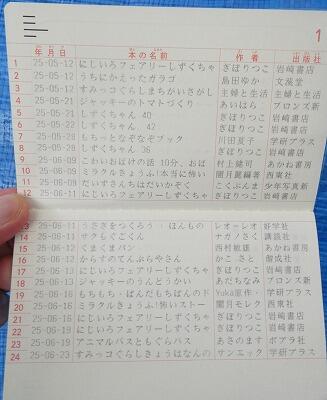 1
年月日 本の名前 作者 出版社
1 25-05-12 にじいろフェアリーしずくちゃ ぎぼりつこ 岩崎書店
2 25-05-12 うちにかえったガラゴ 島田ゆか 文溪堂
3 25-05-12 すみっコぐらしまちがいさがし 主婦と生活 主婦と生活
4 25-05-21 ジャッキーのトマトづくり あいはら ブロンズ新
5 25-05-21 しずくちゃん 40 ぎぼりつこ 岩崎書店
6 しずくちゃん 42 ぎぼりつこ 岩崎書店
7 もっとなぞなぞブック 川田夏子 学研プラス
8 しずくちゃん 36 ぎぼりつこ 岩崎書店
9 25-06-09 こわいおばけの話 10分、おば 村上健司 あかね書房
10 25-06-09 ミラクルきょうふ!本当に怖い 闇月麗編著 西東社
11 25-06-09 だいすきんちはだいかぞく こくぶんま 少年写真新
12 25-06-09 にじいろフェアリーしずくちゃ ぎぼりつこ 岩崎書店
13 25-06-11 うさぎをつくろう ほんもの レオ=レオ 好学社
14 25-06-11 ザクもぐこくん ナカノさく 講談社
15 25-06-12 くまくまパン 西村敏雄 あかね書房
16 25-06-12 からすのてんぷらやさん かこさと 偕成社
17 25-06-13 にじいろフェアリーしずくちゃ ぎぼりつこ 岩崎書店
18 25-06-13 ジャッキーのうんどうかい あだちなみ ブロンズ新
19 25-06-16 ももんち・ぱんだもちぱんのド Yuka原作・ 学研プラス
20 25-06-16 ミラクルきょうふ!怖いストー 闇月モレク 西東社
21 にじいろフェアリーしずくちゃ ぎぼりつこ 岩崎書店
22 にじいろフェアリーしずくちゃ ぎぼりつこ 岩崎書店
23 25-06-19 アニマルバスともぐらバス あさのます ポプラ社
24 25-06-23 すみっコぐらしきょうはなんの サンエック 学研プラス